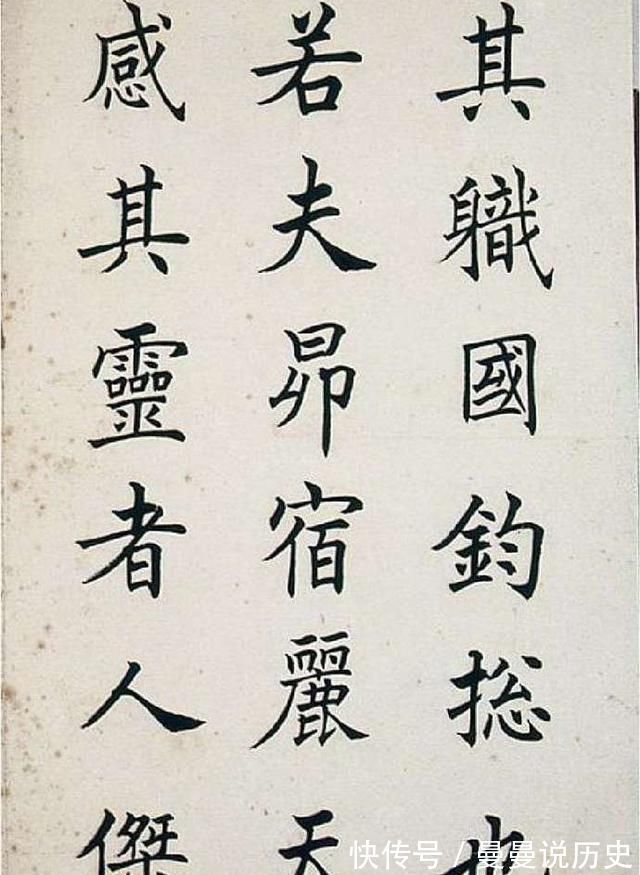 其軄國鈞揔也
若夫昴宿麗天
感其靈者人傑
快传号/曼曼说历史